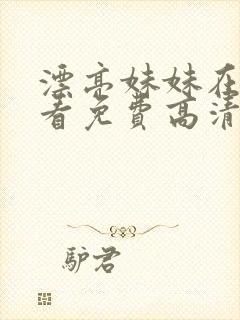 漂亮妹妹在
看免費高清
驴君